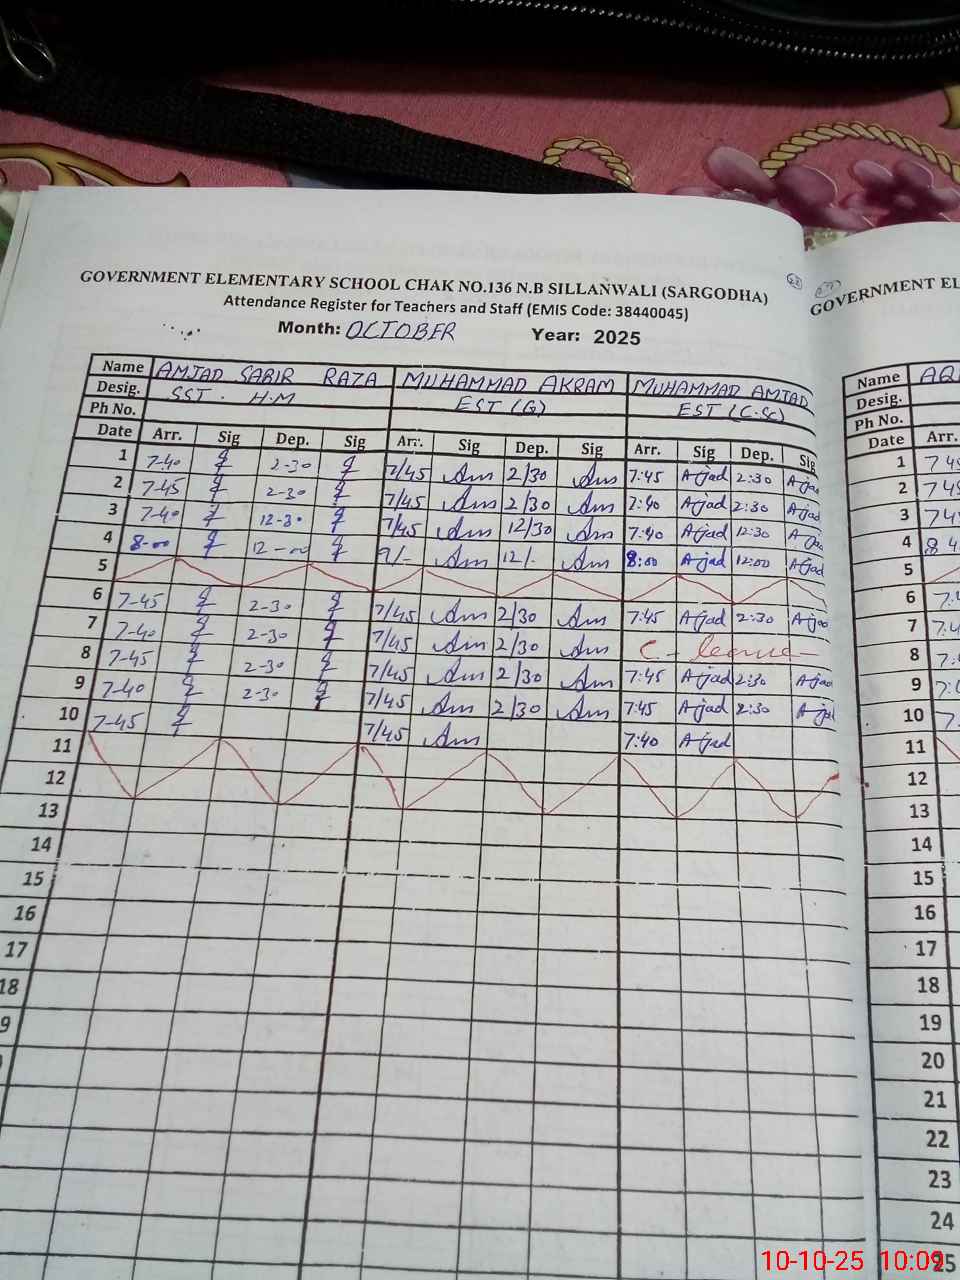 GOVERNMENT ELEMENTARY SCHOOL CHAK NO.136 N.B SILLANWALI (SARGODHA)
Attendance Register for Teachers and Staff (EMIS Code: 38440045)
Month: OCTOBER Year: 2025
Name AMJAD SABIR RAZA MUHAMMAD AKRAM MUHAMMAD AMJAD
Desig. SST. H.M EST (G) EST (C.Sc)
Ph No.
Date Arr. Sig Dep. Sig Arr. Sig Dep. Sig Arr. Sig Dep. Sig
1 7-40 2-30 7/45 Am 2/30 Am 7:45 Ajad 2:30 Ajad
2 7-45 2-30 7/45 Am 2/30 Am 7:40 Ajad 2:30 Ajad
3 7-40 12-30 7/45 Am 12/30 Am 7:40 Ajad 12:30 Ajad
4 8-00 12-00 9/- Am 12/- Am 8:00 Ajad 12:00 Ajad
5
6 7-45 2-30 7/45 Am 2/30 Am 7:45 Ajad 2:30 Ajad
7 7-40 2-30 7/45 Am 2/30 Am C-leave-
8 7-45 2-30 7/45 Am 2/30 Am 7:45 Ajad 2:30 Ajad
9 7-40 2-30 7/45 Am 2/30 Am 7:45 Ajad 2:30 Ajad
10 7-45 7/45 Am 7:40 Ajad
11
12
13
14
15
16
17
18
9
GOVERNMENT EL
Name AQ
Desig.
Ph No.
Date Arr.
1 745
2 745
3 74
4 84
5
6 7:4
7 7:4
8 7:
9 7:
10 7.
11
12
13
14
15
16
17
18
19
20
21
22
23
24
25
10-10-25 10:09